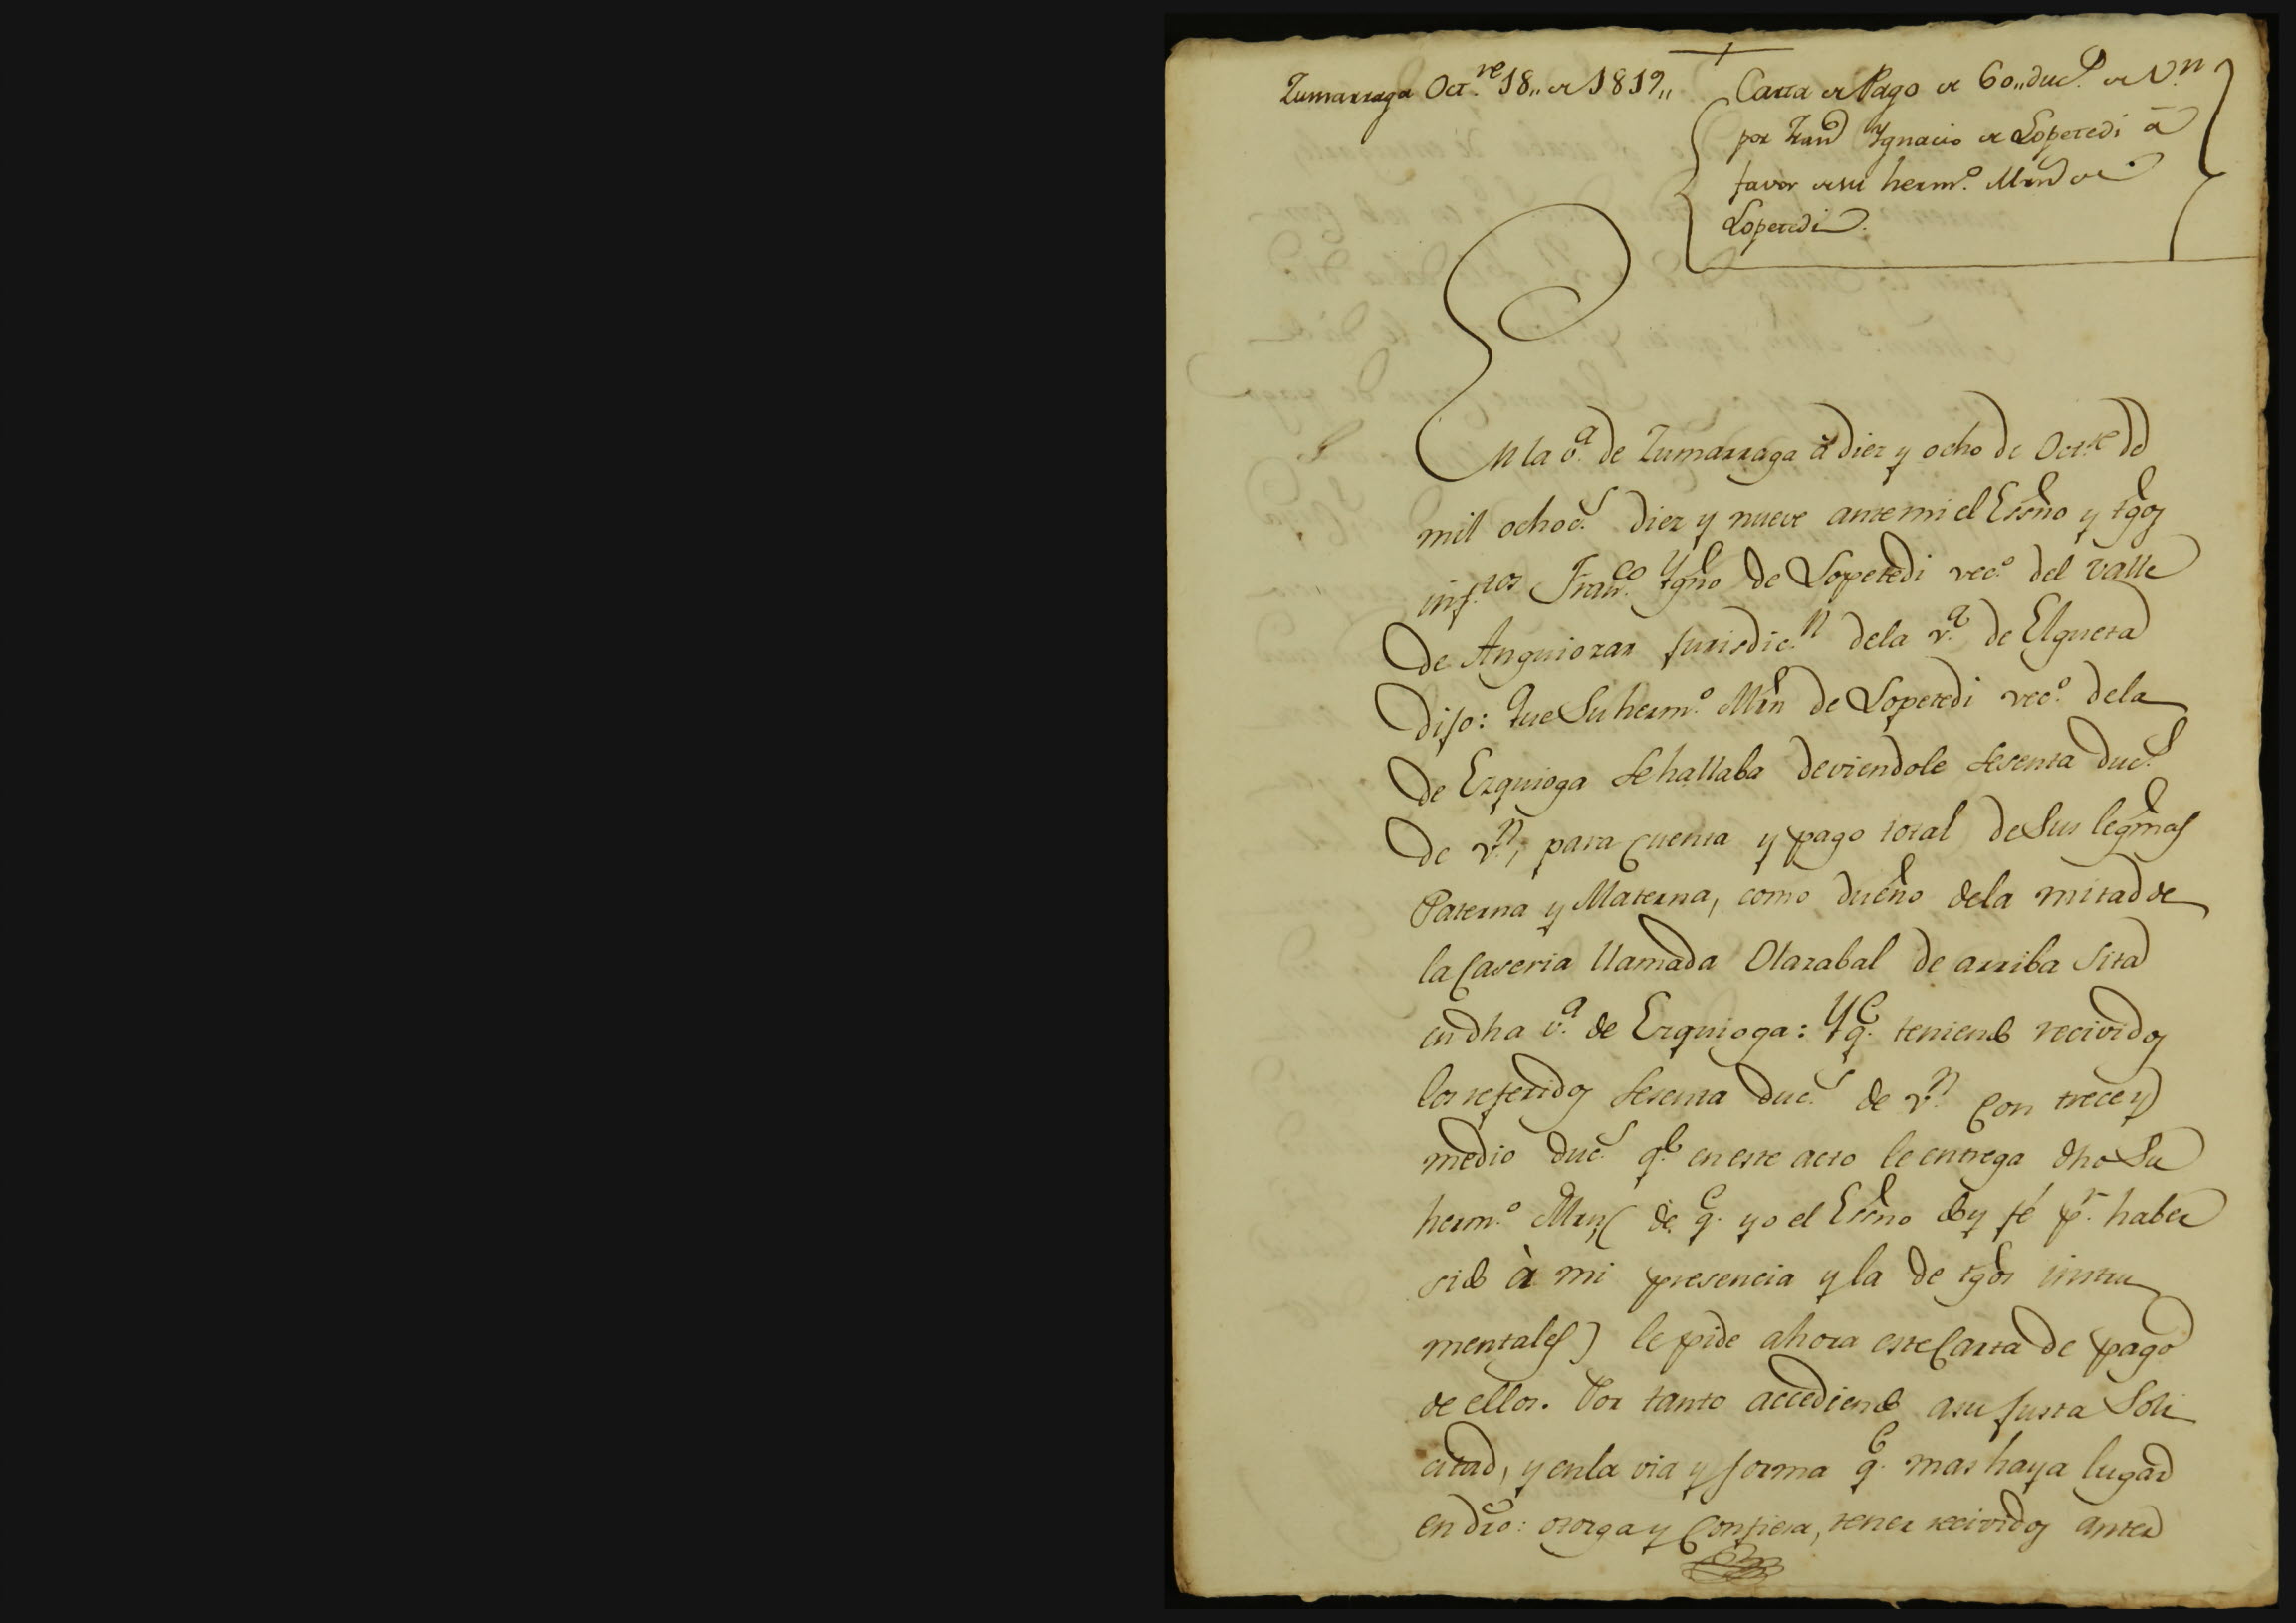 Zumarraga Oct.re 18,, de 1819,,
Carta de Pago de 60,,duc.s de V.n
por Fran.co Ygnacio de Lopetedi â
favor de su herm.o Mrn de
Lopetedi.
En la v.a de Zumarraga â diez y ocho de Oct.re de
mil ochoc.s diez y nueve ante mi el Essno y tgos
inf.tos Fran.co Ygno de Lopetedi vec.o del valle
de Anguiozar jurisdic.n dela v.a de Elgueta
dijo: Que Su herm.o Mrn de Lopetedi vec.o dela
de Ezquioga Se hallaba deviendole Sesenta duc.s
de v.n, para Cuenta y pago total de Sus legmas
Paterna y Materna, como dueño dela mitad de
la Caseria llamada Olazabal de arriba Sita
en dha v.a de Ezquioga: Y q.e teniendo recividos
los referidos Sesenta duc.s de v.n Con trece y
medio duc.s q.e en este acto le entrega dho Su
herm.o Mrn, ( de q.e yo el Essno doy fé p.r haber
sido à mi presencia y la de tgos instru
mentales) le pide ahora este Carta de pago
de ellos. Por tanto accediendo asu justa Soli
citud, y enla via y forma q.e mas haya lugar
en dro: otorga y Confiesa, tener recividos antes